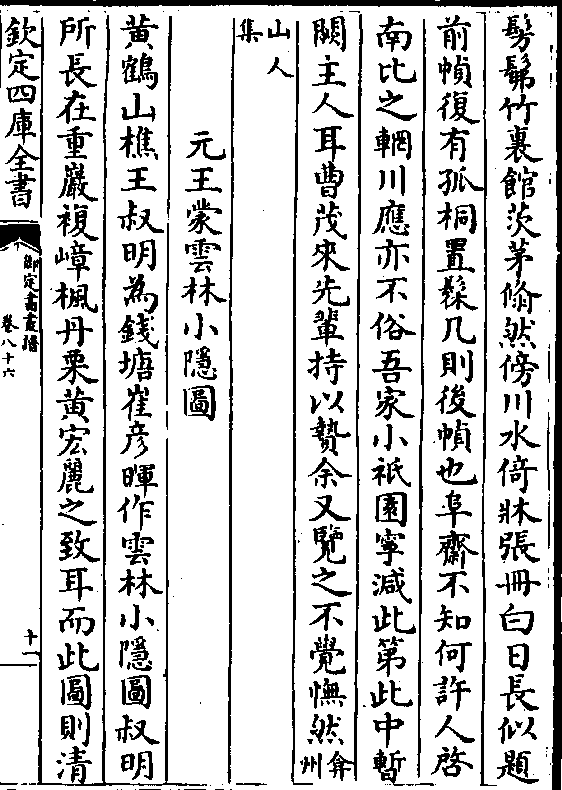 髣髴竹裏館茨茅翛然傍川水倚牀張冊曰日長似題
前幀復有孤桐置髹几則後幀也阜齋不知何許人啓
南比之輞川應亦不俗吾家小祇園寧減此第此中暫
闕主人耳曹茂來先輩持以贄余又覽之不覺憮然弇州
山人集
元王蒙雲林小隱圖
黄鶴山樵王叔明為錢塘崔彦暉作雲林小隱圖叔明
所長在重巖複嶂楓丹栗黄宏麗之致耳而此圖則清
欽定四庫全書
御定書畫譜
卷八十六
十一